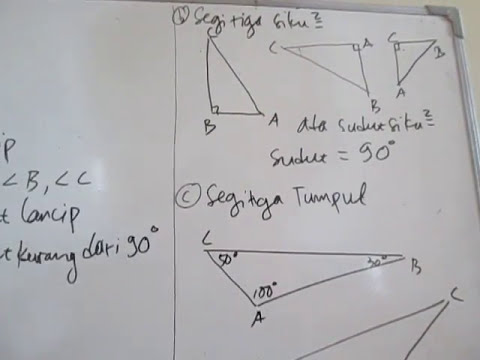 ip
< B, < C
t lancip
t kurang dari 90°
(b) Segitiga siku²
C
B
A
C
A
B
C
B
A
ada sudut siku²
Sudut = 90°
(c) Segitiga Tumpul
C
50°
30°
B
100°
A
C